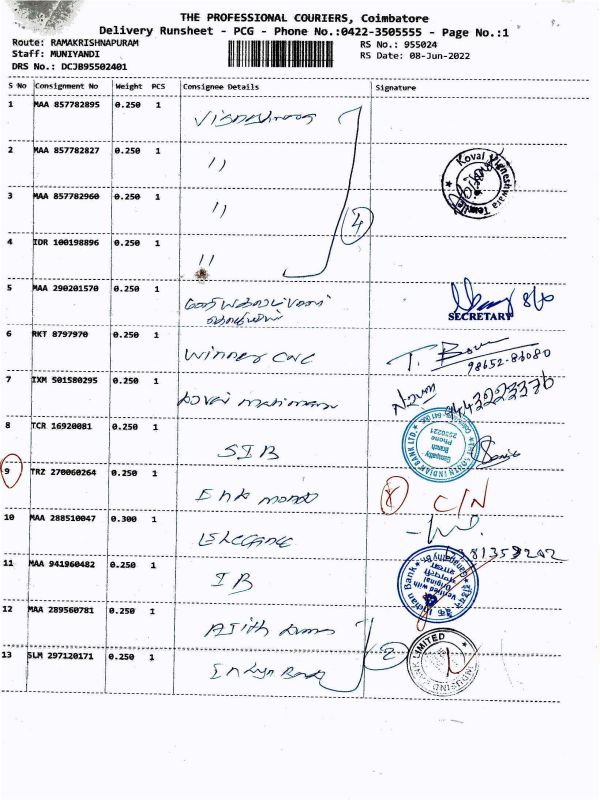 THE PROFESSIONAL COURIERS, Coimbatore
Delivery Runsheet - PCG - Phone No.:0422-3505555 - Page No.:1
Route: RAMAKRISHNAPURAM
RS No.: 955024
Staff: MUNIYANDI
RS Date: 08-Jun-2022
DRS No.: DCJB95502401
S No Consignment No Weight PCS Consignee Details Signature
1 MAA 857782895 0.250 1
2 MAA 857782827 0.250 1 11
Koval Vigneshwara Temple
3 MAA 857782960 0.250 1 11
4
4 IDR 100198896 0.250 1 11
5 MAA 290201570 0.250 1
SECRETARY
6 RKT 8797970 0.250 1 Winner Care
T.
98652-86080
7 IXM 501580295 0.250 1
9443223376
8 TCR 16920081 0.250 1 SIB
THE SOUTH INDIAN BANK LTD.
Branch
Phone
2230221
9 TRZ 270060264 0.250 1
C/N
10 MAA 288510047 0.300 1 Elegance
11 MAA 941960482 0.250 1 IB
Indian Bank
Verified with
Original
12 MAA 289560781 0.250 1 Ajith
2
13 SLM 297120171 0.250 1
INDUSIND BANK LIMITED